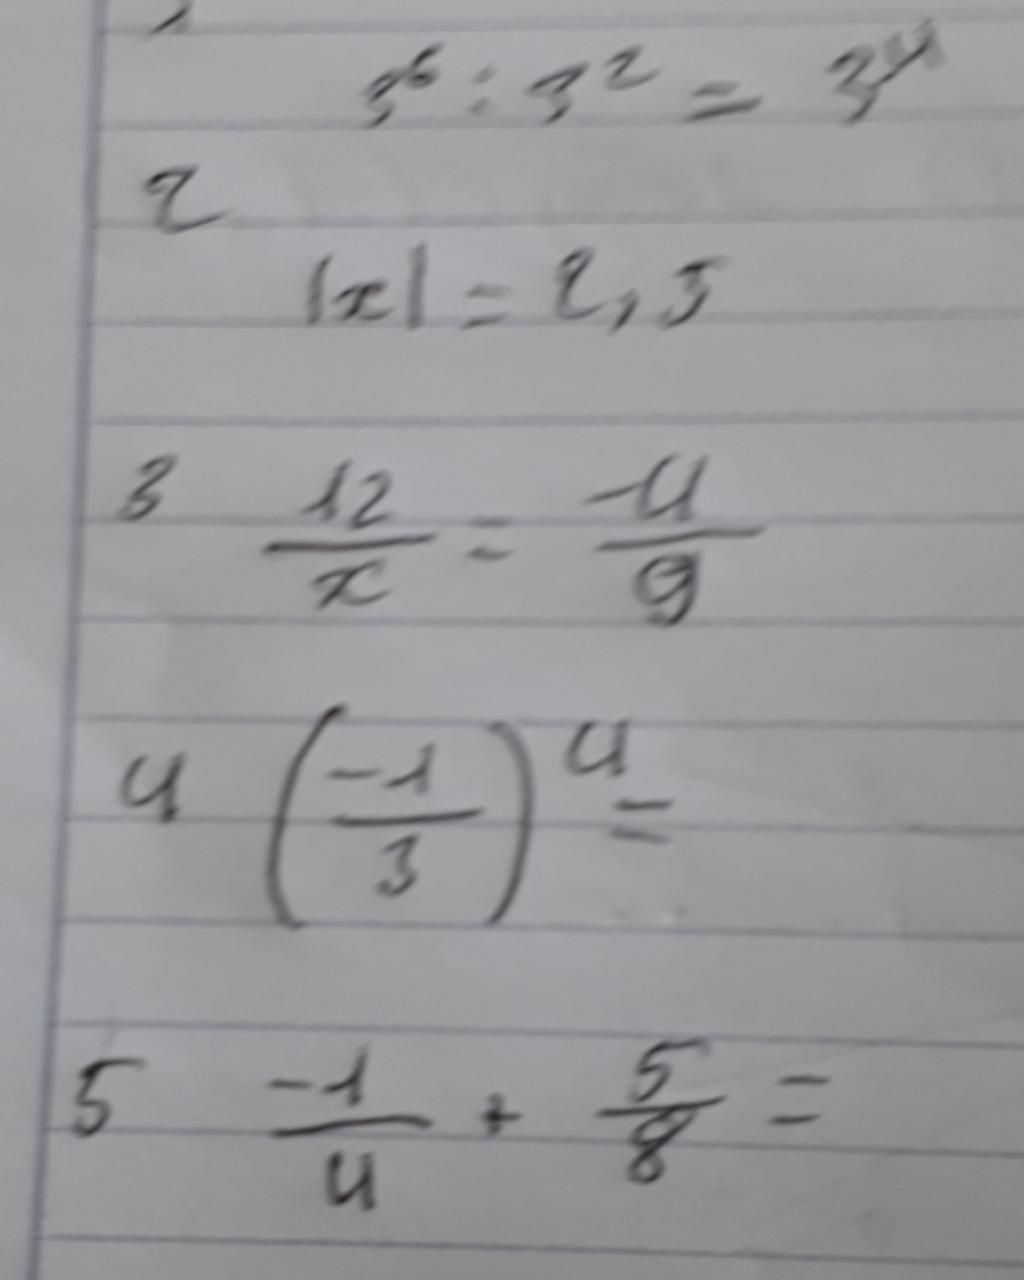 1
3⁶ : 3² = 3⁴
2
|x| = 2,5
3 12/x = -4/9
4 (-1/3)⁴ =
5 -1/4 + 5/8 =